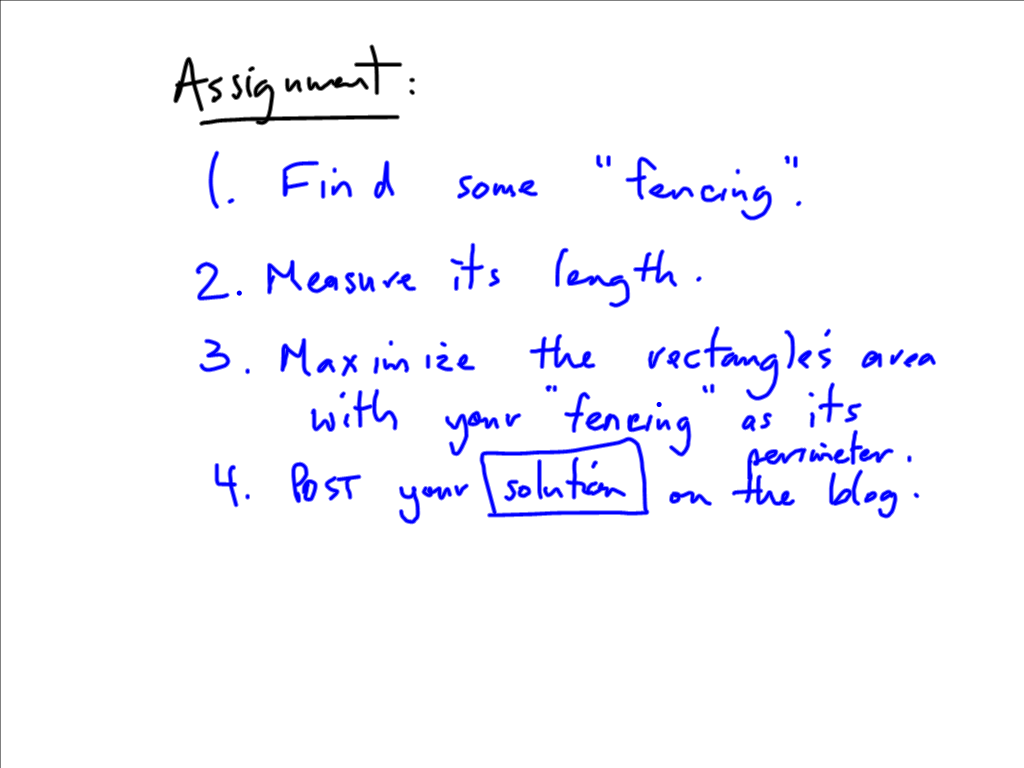 Assignment:
1. Find some "fencing".
2. Measure its length.
3. Maximize the rectangle's area
with your "fencing" as its
perimeter.
4. Post your solution on the blog.